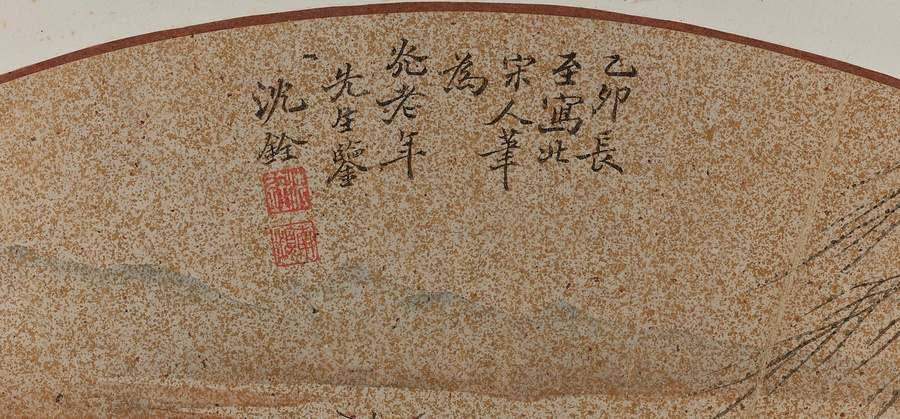 乙卯長
至寫北
宋人筆
為
兆老年
先生鑒
沈銓